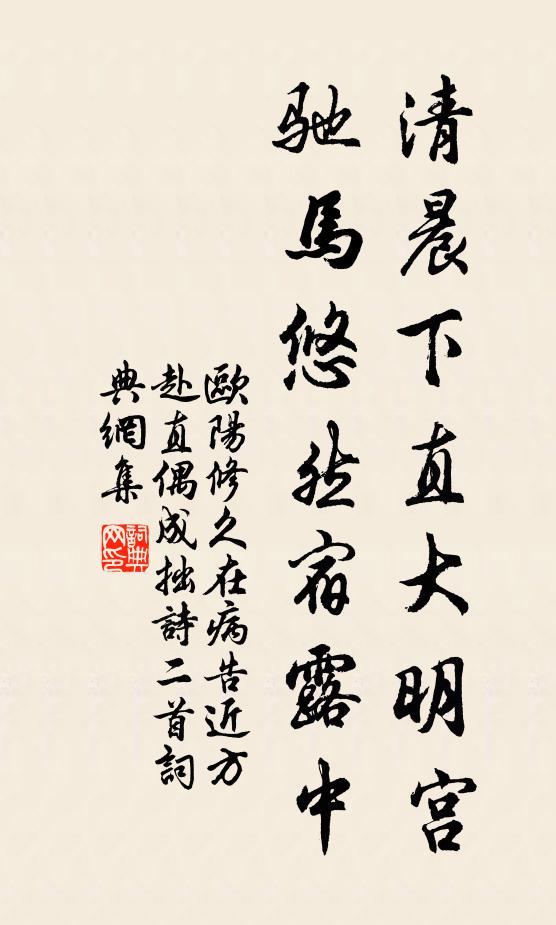 清晨下直大明宫
馳馬悠然宿露中
歐陽修久在病告近方
赴直偶成拙詩二首詞
典網集
詞典網印